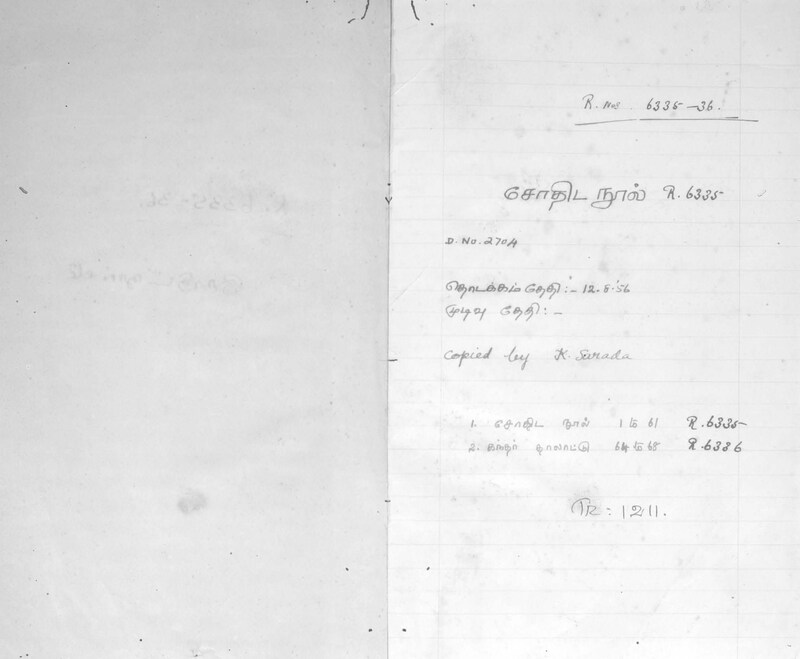 R. Nos 6335-36.
சோதிட நூல் R. 6335
D. No. 2704
தொடக்கம் தேதி :- 12.5.56
முடிவு தேதி : -
Copied by K. Sarada
1. சோதிட நூல் 1 to 61 R. 6335
2. தாலாட்டு 64 to 68 R. 6336
TR : 1211.